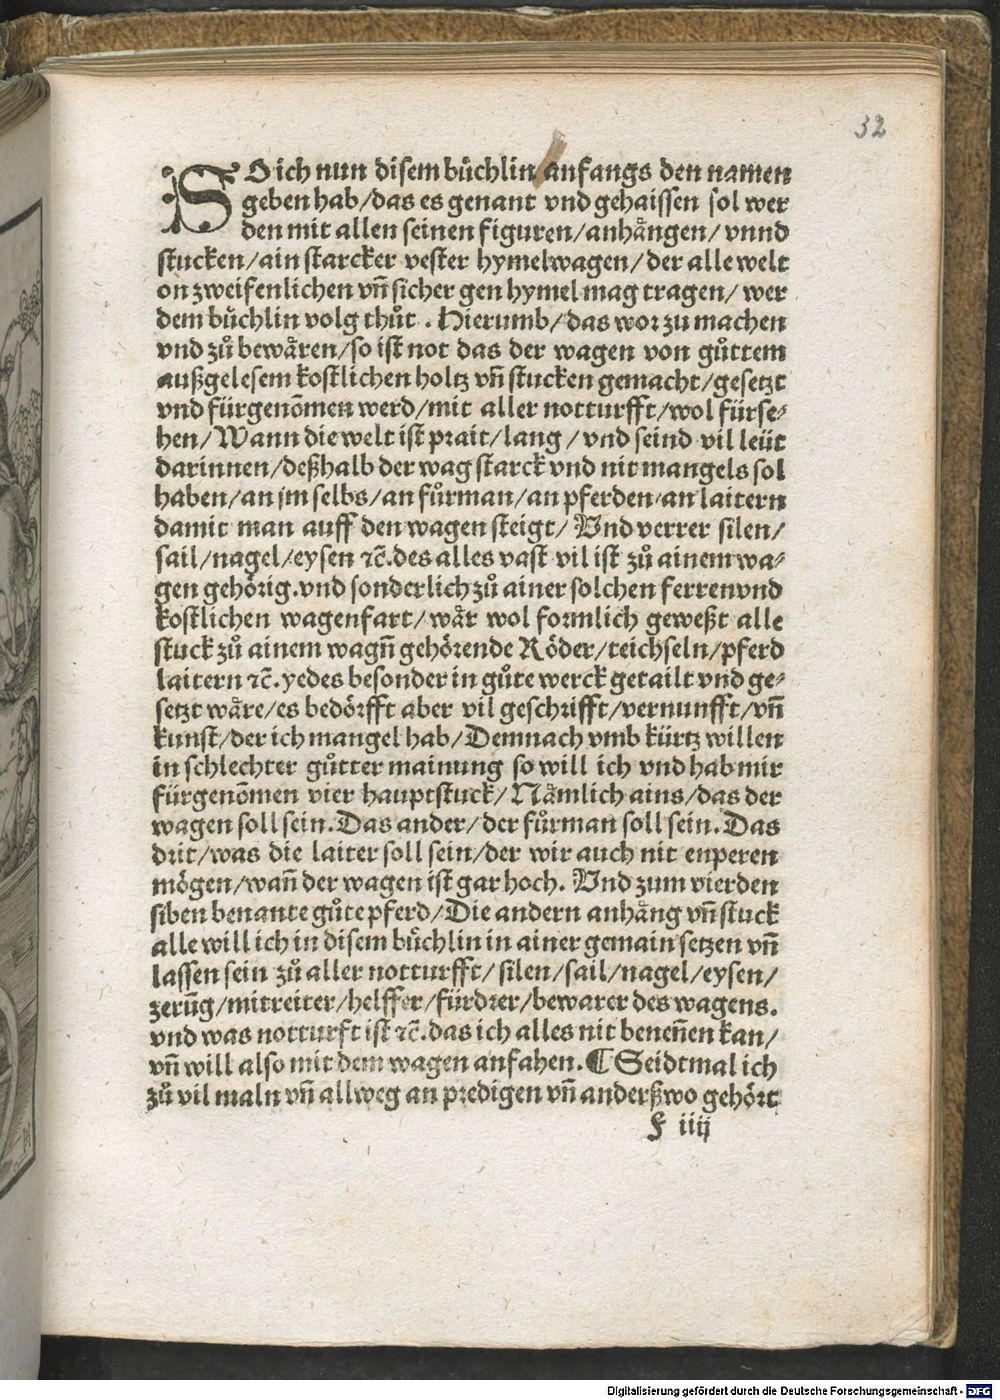 32
SO ich nun disem bůchlin anfangs den namen
geben hab/das es genant vnd gehaissen sol wer
den mit allen seinen figuren/anhãngen/vnnd
stucken/ain starcker vester hymelwagen/der alle welt
on zweifenlichen vñ sicher gen hymel mag tragen/wer
dem bůchlin volg thůt. Hierumb/das wor zu machen
vnd zů bewåren/so ist not das der wagen von gůttem
außgelesem kostlichen holtz vñ stucken gemacht/gesetzt
vnd fürgenõmen werd/mit aller notturfft/wol fürse⸗
hen/Wann die welt ist prait/lang/vnd seind vil leüt
darinnen/deßhalb der wag starck vnd nit mangels sol
haben/an jm selbs/an fůrman/an pferden/an laitern
damit man auff den wagen steigt/Vnd verrer silen/
sail/nagel/eysen ⁊c̃.des alles vast vil ist zů ainem wa⸗
gen gehörig.vnd sonderlich zů ainer solchen ferren vnd
kostlichen wagenfart/wår wol formlich geweßt alle
stuck zů ainem wagñ gehörende Röder/teichseln/pferd
laitern ⁊c̃.yedes besonder in gůte werck getailt vnd ge⸗
setzt wåre/es bedörfft aber vil geschrifft/vernunfft/vñ
kunst/der ich mangel hab/Demnach vmb kürtz willen
in schlechter gůtter mainung so will ich vnd hab mir
fürgenõmen vier hauptstuck/Nåmlich ains/das der
wagen soll sein.Das ander/der fůrman soll sein.Das
drit/was die laiter soll sein/der wir auch nit enperen
mögen/wañ der wagen ist gar hoch. Vnd zum vierden
siben benante gůte pferd/Die andern anhång vñ stuck
alle will ich in disem bůchlin in ainer gemain setzen vñ
lassen sein zů aller notturfft/silen/sail/nagel/eysen/
zerũg/mitreiter/helffer/fürdrer/bewarer des wagens.
vnd was notturft ist ⁊c̃.das ich alles nit beneñen kan/
vñ will also mit dem wagen anfahen.¶Seidtmal ich
zů vil maln vñ allweg an predigen vñ anderßwo gehört
F iiij
Digitalisierung gefördert durch die Deutsche Forschungsgemeinschaft - DFG